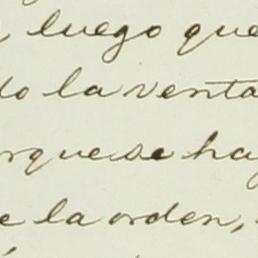 , luego que
do la venta
rque se hay
e la orden,